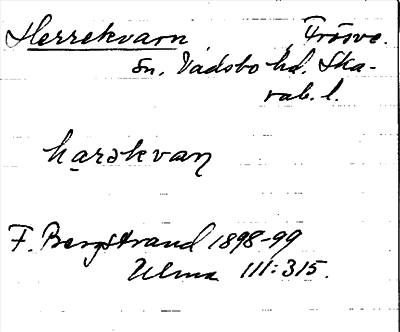 Herrekvarn, Frösve.
sn, Vadsbo hd, Ska-
rab. l.
hạrəkvaɳ
F. Bergstrand 1898-99
Ulma 111:315.